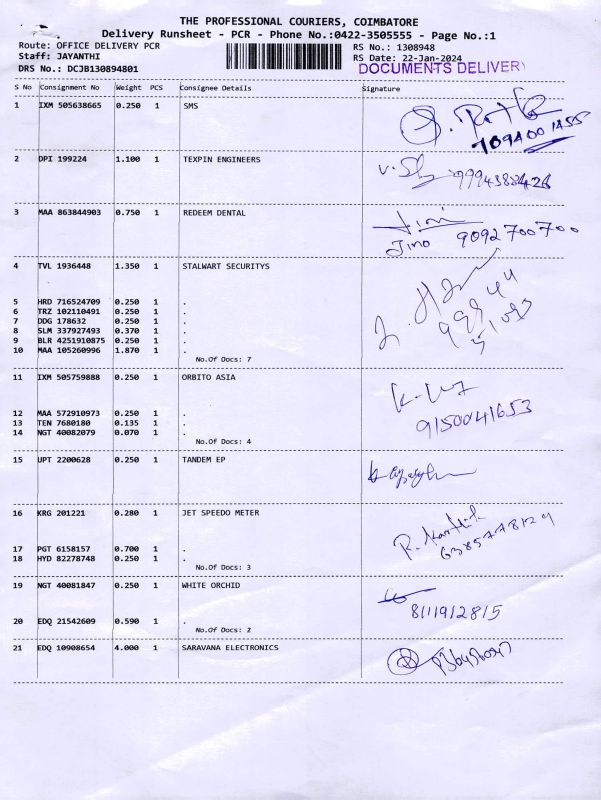 THE PROFESSIONAL COURIERS, COIMBATORE
Delivery Runsheet - PCR - Phone No.:0422-3505555 - Page No.:1
Route: OFFICE DELIVERY PCR
RS No.: 1308948
Staff: JAYANTHI
RS Date: 22-Jan-2024
DRS No.: DCJB130894801
DOCUMENTS DELIVERY
S No Consignment No Weight PCS Consignee Details Signature
1 IXM 505638665 0.250 1 SMS
2 DPI 199224 1.100 1 TEXPIN ENGINEERS
3 MAA 863844903 0.750 1 REDEEM DENTAL
Jino 9092700700
4 TVL 1936448 1.350 1 STALWART SECURITYS
5 HRD 716524709 0.250 1 .
6 TRZ 102110491 0.250 1 .
7 DDG 178632 0.250 1 .
8 SLM 337927493 0.370 1 .
9 BLR 4251910875 0.250 1 .
10 MAA 105260996 1.870 1 .
No.Of Docs: 7
11 IXM 505759888 0.250 1 ORBITO ASIA
9150041653
12 MAA 572910973 0.250 1 .
13 TEN 7680180 0.135 1 .
14 NGT 40082079 0.070 1 .
No.Of Docs: 4
15 UPT 2200628 0.250 1 TANDEM EP
16 KRG 201221 0.280 1 JET SPEEDO METER
R. Karthik
6385778129
17 PGT 6158157 0.700 1 .
18 HYD 82278748 0.250 1 .
No.Of Docs: 3
19 NGT 40081847 0.250 1 WHITE ORCHID
8111912815
20 EDQ 21542609 0.590 1 .
No.Of Docs: 2
21 EDQ 10908654 4.000 1 SARAVANA ELECTRONICS